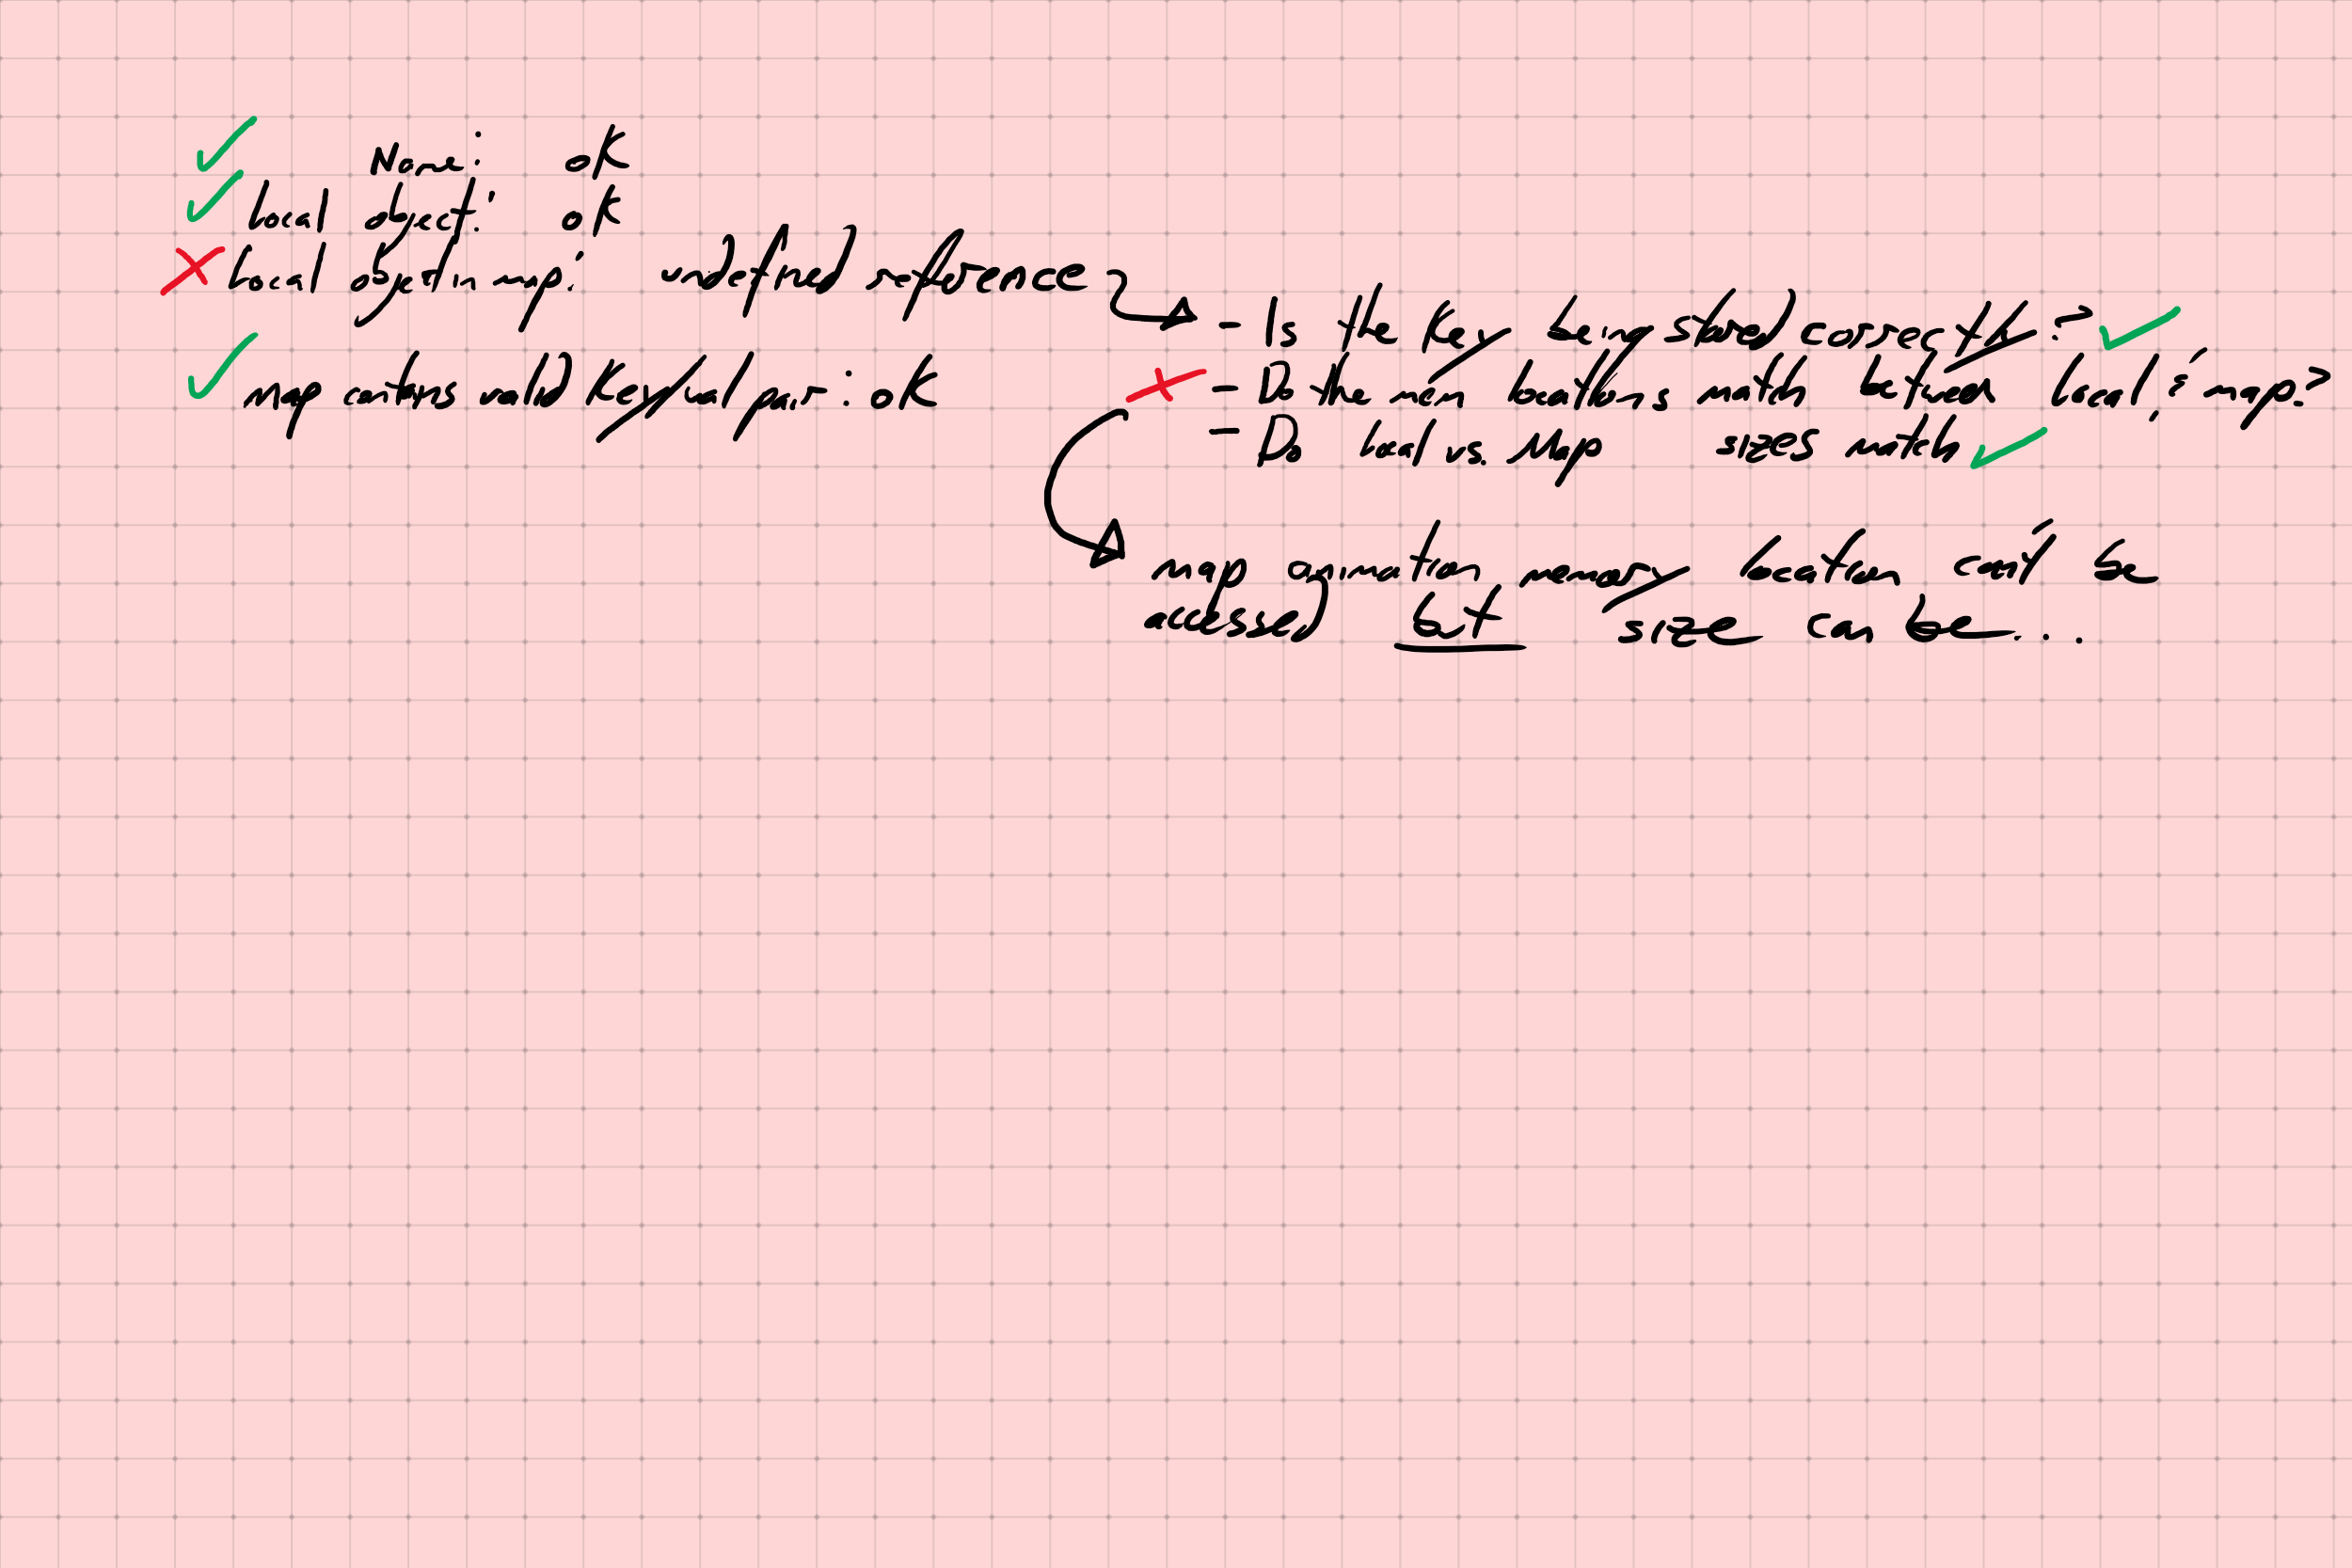 Name: ok
Local object: ok
Local object in map: undefined reference
map contains valid key/val pair: ok
- Is the key being stored correctly?
- Do the mem locations match between local & map?
- Do local vs. Map sizes match
map animation memory location can't be
accessed but size can be...